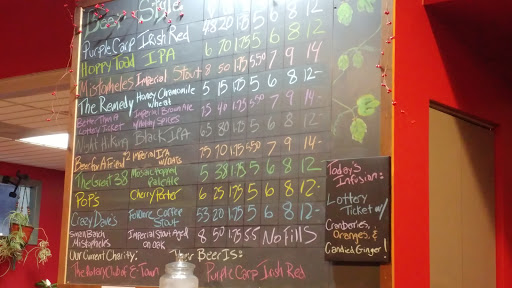 Beer Style
Purple Carp Irish Red 48 20 1.75 5 6 8 12-
Hoppy Toad IPA 6 70 1.75 5 6 8 12-
Mistopheles Imperial Stout 8 50 1.75 5.50 7 9 14
The Remedy Honey Chamomile Wheat 5 15 1.75 5 6 8 12-
Better Than A Lottery Ticket Imperial Brown Ale w/Holiday Spices 40 1.75 7 9 14-
Night Hiking Black IPA 65 80 1.75 5 6 8 12-
Beer for A Friend #2 Imperial IPA w/OATS 75 70 1.75 5.50 7 9 14-
The Great 38 Mosaic Hopped Pale Ale 5 38 1.75 5 6 8 12-
Pop's Cherry Porter 6 25 1.75 5 6 8 12-
Crazy Dave's Coffee Stout 53 20 1.75 5 6 8 12-
Small Batch Mistopheles Imperial Stout Aged on Oak 8 50 1.75 5.5 No Fills
Our Current Charity: Beer Is:
The Rotary Club of E-Town Purple Carp Irish Red
Today's
Infusion:
Lottery
Ticket w/
Cranberries,
Oranges, &
Candied Ginger!